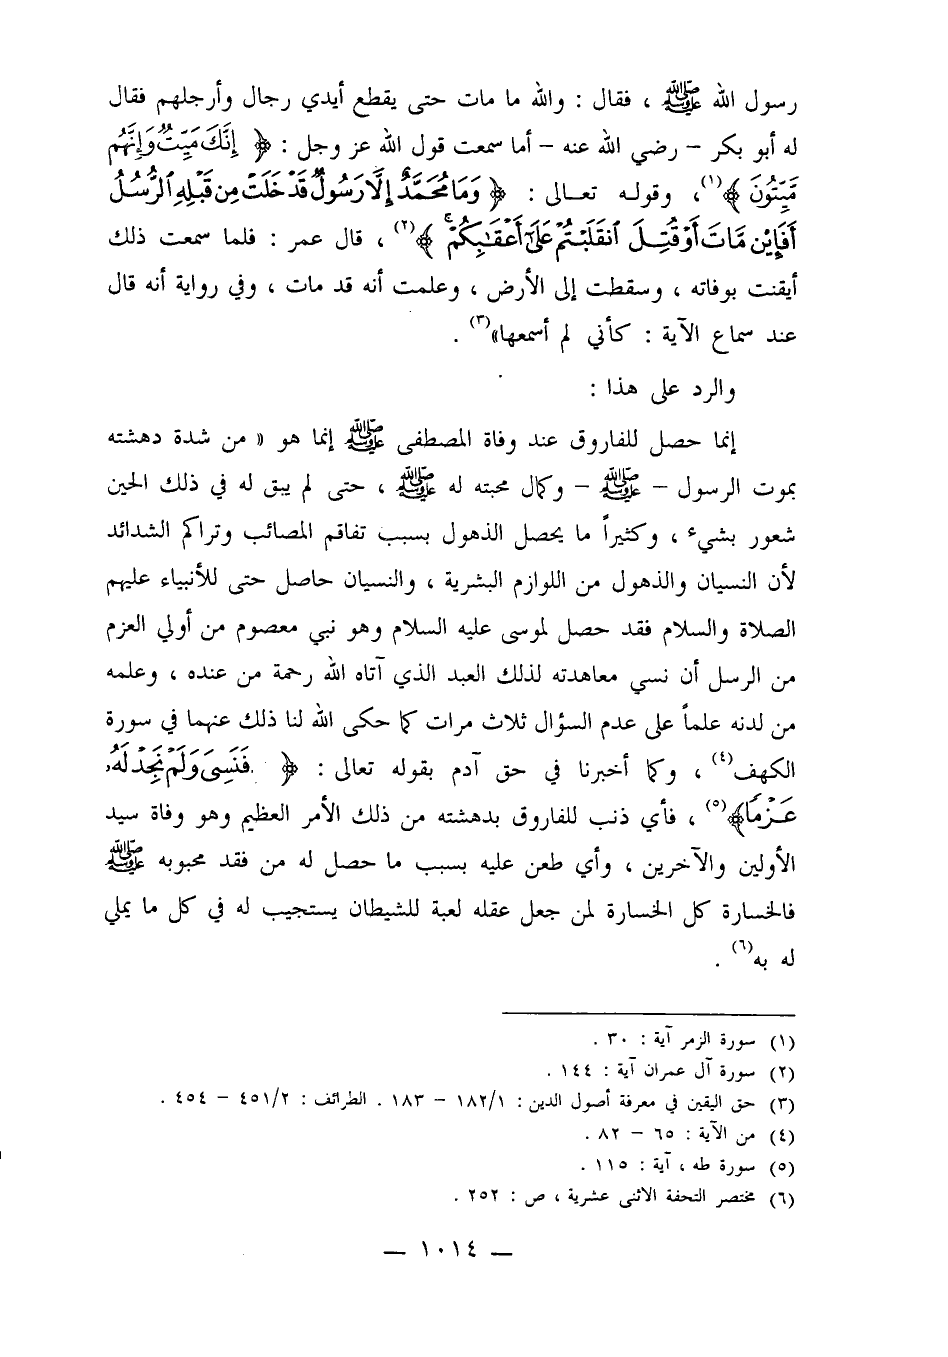 رسول الله ﷺ ، فقال : والله ما مات حتى يقطع أيدي رجال وأرجلهم فقال
له أبو بكر – رضي الله عنه – أما سمعت قول الله عز وجل : ﴿ إِنَّكَ مَيِّتٌ وَإِنَّهُم
مَّيِّتُونَ ﴾(١)، وقوله تعالى : ﴿ وَمَا مُحَمَّدٌ إِلَّا رَسُولٌ قَدْ خَلَتْ مِن قَبْلِهِ ٱلرُّسُلُ
أَفَإِيْن مَّاتَ أَوْ قُتِلَ ٱنقَلَبْتُمْ عَلَىٰٓ أَعْقَٰبِكُمْ ۚ ﴾(٢) ، قال عمر : فلما سمعت ذلك
أيقنت بوفاته ، وسقطت إلى الأرض ، وعلمت أنه قد مات ، وفي رواية أنه قال
عند سماع الآية : كأني لم أسمعها»(٣) .
والرد على هذا :
إنما حصل للفاروق عند وفاة المصطفى ﷺ إنما هو « من شدة دهشته
بموت الرسول – ﷺ – وكمال محبته له ﷺ ، حتى لم يبق له في ذلك الحين
شعور بشيء ، وكثيراً ما يحصل الذهول بسبب تفاقم المصائب وتراكم الشدائد
لأن النسيان والذهول من اللوازم البشرية ، والنسيان حاصل حتى للأنبياء عليهم
الصلاة والسلام فقد حصل لموسى عليه السلام وهو نبي معصوم من أولي العزم
من الرسل أن نسي معاهدته لذلك العبد الذي آتاه الله رحمة من عنده ، وعلمه
من لدنه علماً على عدم السؤال ثلاث مرات كما حكى الله لنا ذلك عنهما في سورة
الكهف(٤) ، وكما أخبرنا في حق آدم بقوله تعالى : ﴿ فَنَسِىَ وَلَمْ نَجِدْ لَهُۥ
عَزْمًا﴾(٥) ، فأي ذنب للفاروق بدهشته من ذلك الأمر العظيم وهو وفاة سيد
الأولين والآخرين ، وأي طعن عليه بسبب ما حصل له من فقد محبوبه ﷺ
فالخسارة كل الخسارة لمن جعل عقله لعبة للشيطان يستجيب له في كل ما يملي
له به(٦) .
(١) سورة الزمر آية : ٣٠ .
(٢) سورة آل عمران آية : ١٤٤ .
(٣) حق اليقين في معرفة أصول الدين : ١٨٢/١ – ١٨٣ . الطرائف : ٤٥١/٢ – ٤٥٤ .
(٤) من الآية : ٦٥ – ٨٢ .
(٥) سورة طه ، آية : ١١٥ .
(٦) مختصر التحفة الاثنى عشرية ، ص : ٢٥٢ .
— ١٠١٤ —